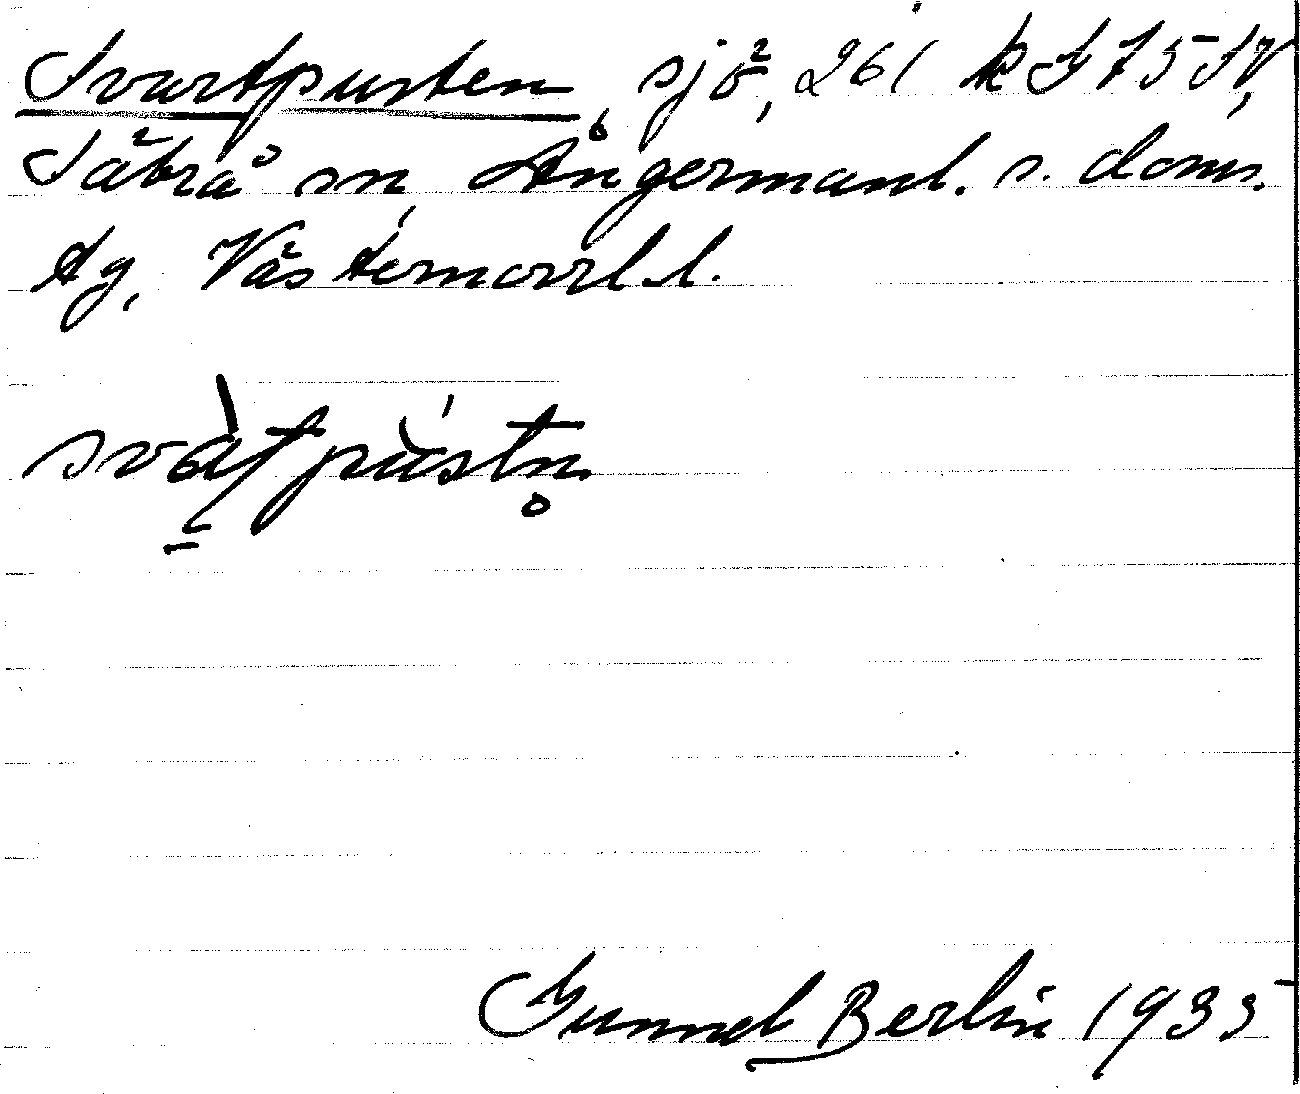 Svartpusten, sjö, 261 k I 75 SV,
Säbrå sn Ångermanl. s. doms.
tg, Västernorrl l.
svàt̠pùstn̥
Gunnel Berlin 1935